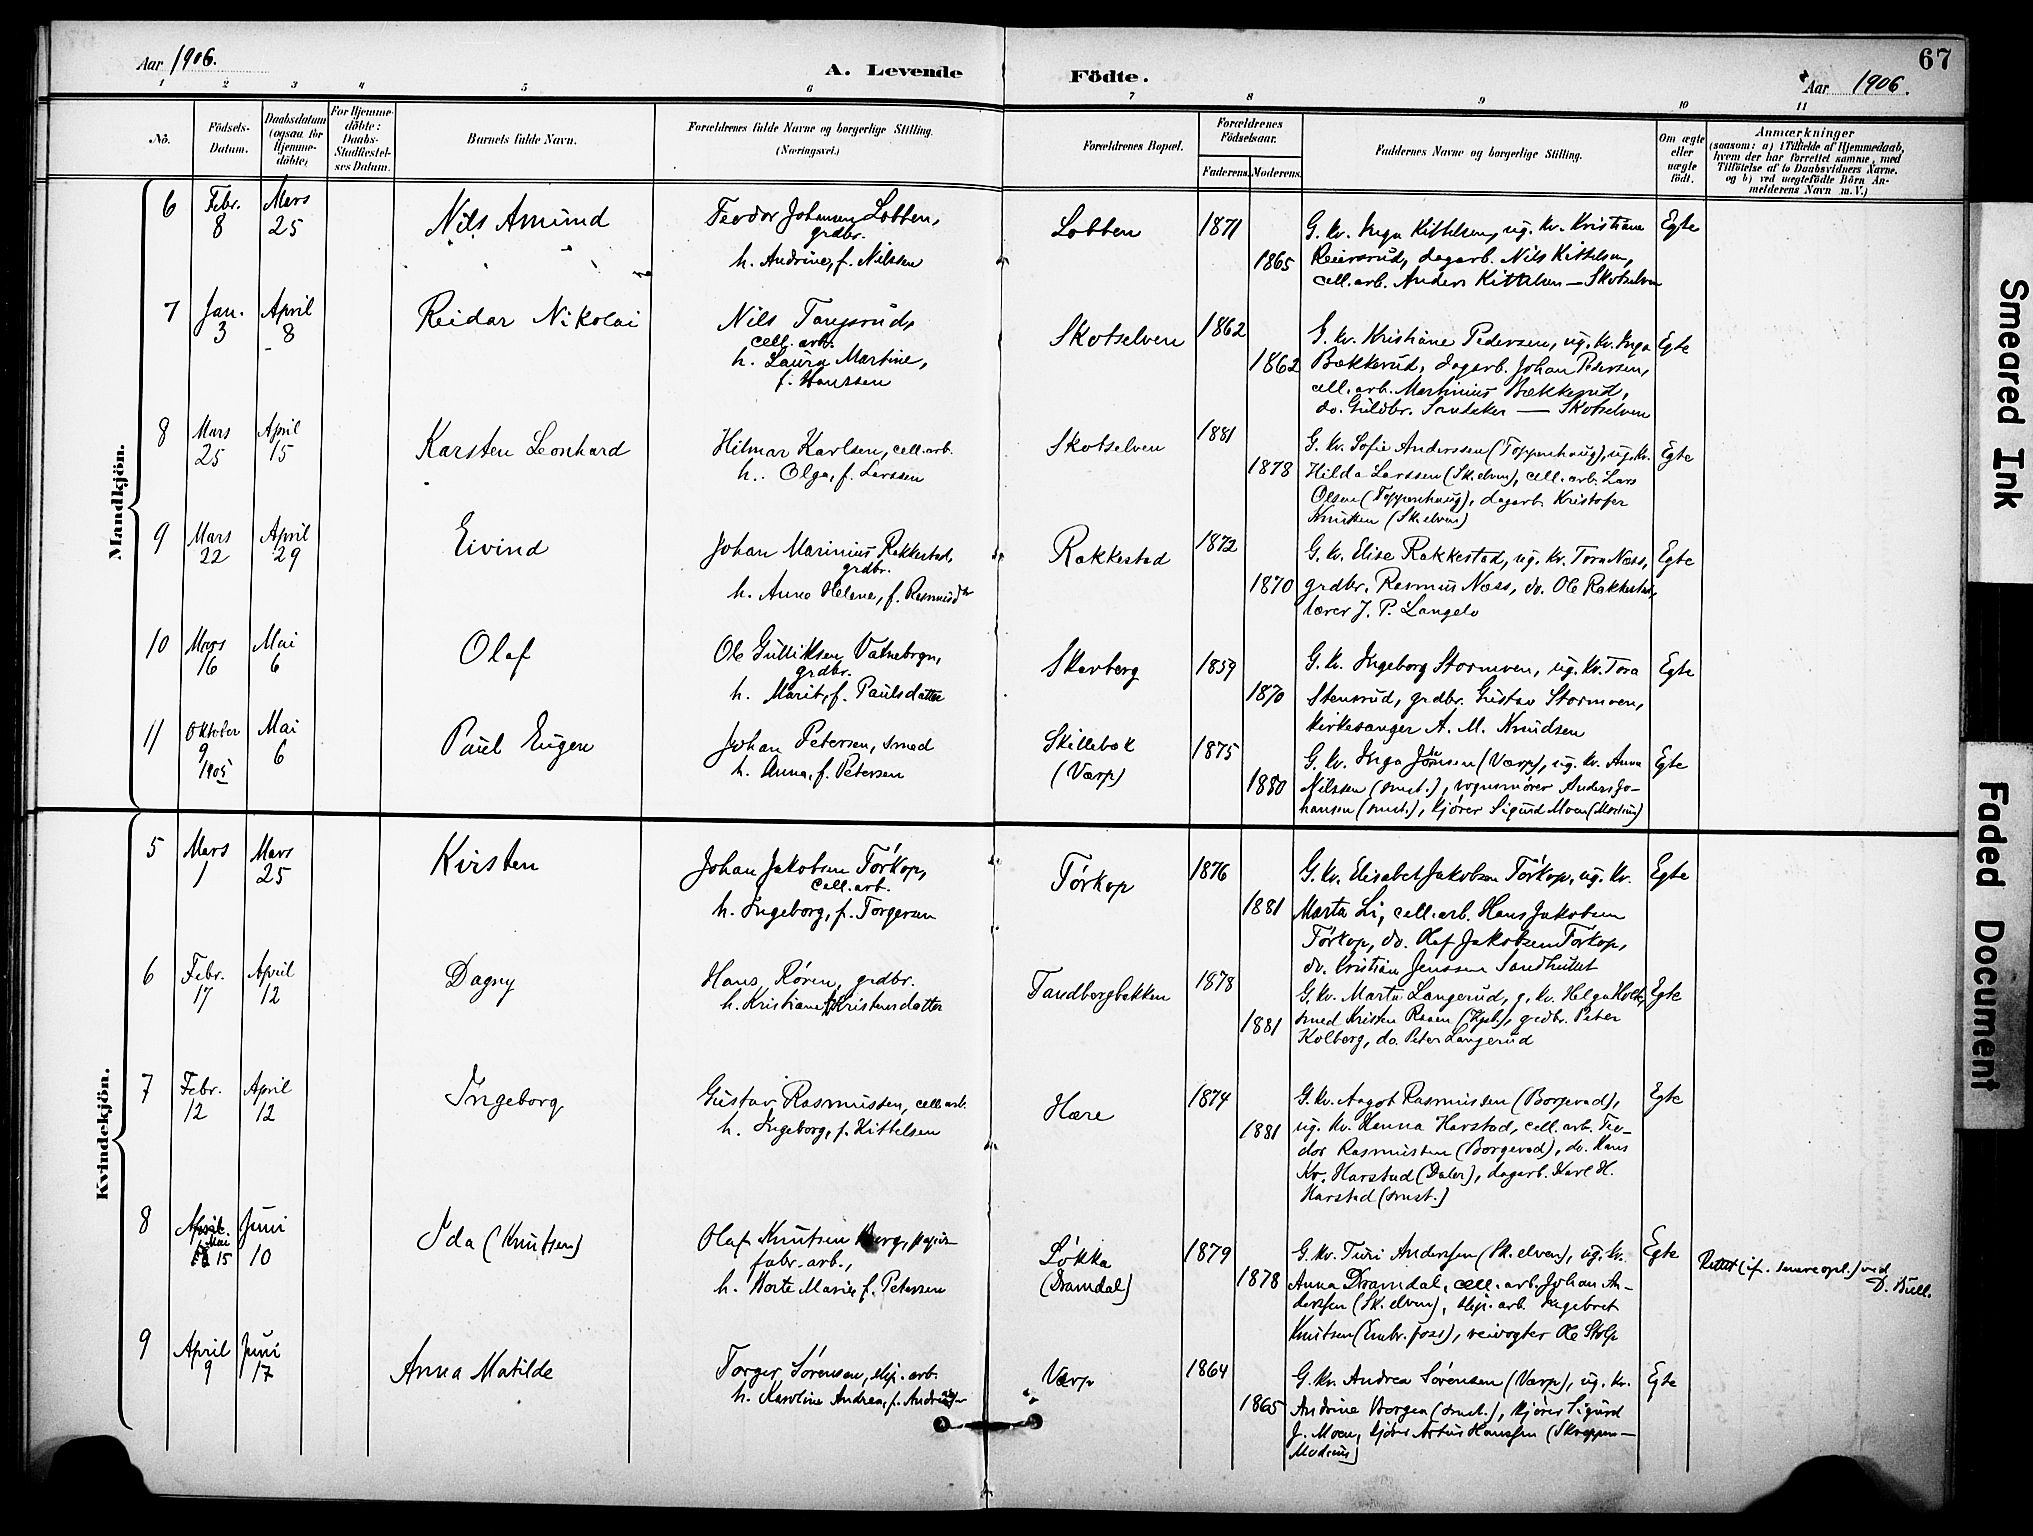 Aar 1906.
A. Levende Födte.
67
Aar 1906.
1 2 3 4 5 6 7 8 9 10 11
No.
Födsels-Datum.
Daabsdatum (ogsaa for Hjemme-döbte;
For Hjemme-döbte: Daabs-Stadfæstel-ses Datum.
Barnets fulde Navn.
Forældrenes fulde Navne og borgerlige Stilling.
(Næringsvei.)
Forældrenes Bopæl.
Forældrenes Födselsaar.
Faderens. Moderens.
Faddernes Navne og borgerlige Stilling.
Om ægte eller uægte födt.
Anmærkninger
(saasom: a) i Tilfælde af Hjemmedaab,
hvem der har forrettet samme, med
Tilföielse af to Daabsvidners Navne.
og b) ved uægtefödte Börn An-
melderens Navn m. V.)
Mandkjön.
6 Febr. 8 Mars 25 Nils Amund
Teodor Johannes Lobben,
grdbr.
h. Andrine, f. Nilssen
Lobben 1871 1865
G. kv. Inga Kittelsen, ug. kv. Kristiane
Reiersrud, dagarb. Nils Kittelsen,
cell. arb. Anders Kittelsen — Skotselven
Egte
7 Jan. 3 April 8 Reidar Nikolai
Nils Tangsrud,
cell. arb.
h. Laura Martine,
f. Hanssen
Skotselven 1862 1862
G. kv. Kristiane Pedersen, ug. kv. Inga
Bækkerud, dagarb. Johan Pedersen,
cell. arb. Martinius Bækkerud,
do. Guldbr. Sandaker — Skotselven
Egte
8 Mars 25 April 15 Karsten Leonhard
Hilmar Karlsen, cell. arb.
h. Olga, f. Larssen
Skotselven 1881 1878
G. kv. Sofie Anderssen (Toppenhaug), ug. kv.
Hilda Larssen (Sk. elven), cell. arb. Lars
Olsen (Toppenhaug), dagarb. Kristofer
Knutsen (Sk. elven)
Egte
9 Mars 22 April 29 Eivind
Johan Marinius Rakkestad,
grdbr.
h. Anne Helene, f. Rasmusd
Rakkestad 1872 1870
G. kv. Elise Rakkestad, ug. kv. Tora Næss,
grdbr. Rasmus Næss, do. Ole Rakkestad,
lærer J. P. Langelo
Egte
10 Mars 16 Mai 6 Olaf
Ole Gulliksen Vatnebryn,
grdbr.
h. Marit, f. Paulsdatter
Skarberg 1859 1870
G. kv. Ingeborg Stormoen, ug. kv. Tora
Stensrud, grdbr. Gustav Stormoen,
kirkesanger A. M. Knudsen
Egte
11 Oktober 9 1905 Mai 6 Paul Eugen
Johan Petersen, smed
h. Anna, f. Petersen
Skillebæk
(Værp)
1875 1880
G. kv. Inga Jonsen (Værp), ug. kv. Anna
Nilssen (smst.), vognsmører Anders Jo-
hansen (smst.), kjører Sigurd Moen (Modum)
Egte
Kvindekjön.
5 Mars 1 Mars 25 Kirsten
Johan Jakobsen Tórkop,
cell. arb.
h. Ingeborg, f. Torgersen
Tórkop 1876 1881
G. kv. Elisabet Jakobsen Tórkop, ug. kv.
Marta Li, cell. arb. Hans Jakobsen
Tórkop, do. Olaf Jakobsen Tórkop,
do. Kristian Jenssen Sandhullet
Egte
6 Febr. 17 April 12 Dagny
Hans Róren, grdbr.
h. Kristiane, f. Kristensdatter
Tandbergbakken 1878 1881
G. kv. Marta Langerud, g. kv. Helga Holte,
smed Kristen Raaen (Kjsb.), grdbr. Peter
Kolberg, do. Peter Langerud
Egte
7 Febr. 12 April 12 Ingeborg
Gustav Rasmussen, cell. arb.
h. Ingeborg, f. Kittelsen
Hære 1874 1881
G. kv. Aagot Rasmussen (Borgevad),
ug. kv. Hanna Harstad, cell. arb. Teo-
dor Rasmussen (Borgevad), do. Hans
Kr. Harstad (Daler), dagarb. Karl H.
Harstad (smst.)
Egte
8 April Mai 15 Juni 10 Ida (Knutsen)
Olaf Knutsen Berg, papir-
fabr. arb.,
h.Borte Marie, f. Petersen
Lókka
(Dramdal)
1879 1878
G. kv. Turi Anderssen (Sk. elven), ug. kv.
Anna Dramdal, cell. arb. Johan An-
derssen (Sk. elven), slip. arb. Ingebret
Knutsen (Embr. foss), veivogter Ole Stolp
Egte
Rettet (if. senere opl.) ved
D. Bull.
9 April 9 Juni 17 Anna Matilde
Torger Sórensen, slip. arb.
h. Karoline Andrea, f.
Værp 1864 1865
G. kv. Andrea Sórensen (Værp), ug. kv.
Andrine Borgen (smst.), kjórer Sigurd
J. Moen, kjórer Artur Hanssen (Skreppen—
Modum)
Egte
Smeared Ink
Faded Document